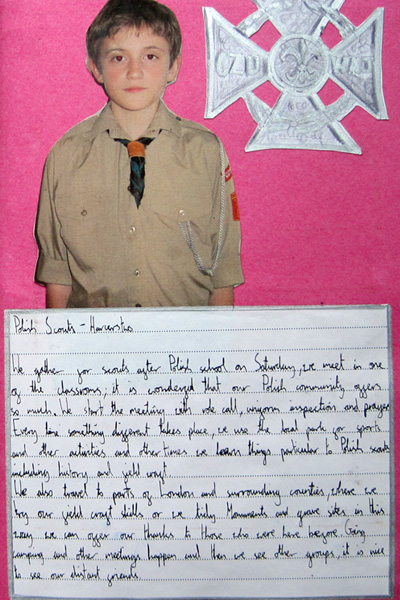 CZU WAJ
Polish Scouts - Harcerstwo
We gather for scouts after Polish school on Saturday, we meet in one
of the classrooms, it is wonderful that our Polish community offers
so much. We start the meeting with role call, uniform inspection and prayer
Every time something different takes place, we use the local park for sports
and other activities and other times we learn things particular to Polish scouts
including history and field craft.
We also travel to parts of London and surrounding counties, where we
try our field craft skills or we tidy Monuments and grave sites in this
way we can offer our thanks to those who were here before. Going
camping and other meetings happen and then we see other groups, it is nice
to see our distant friends.